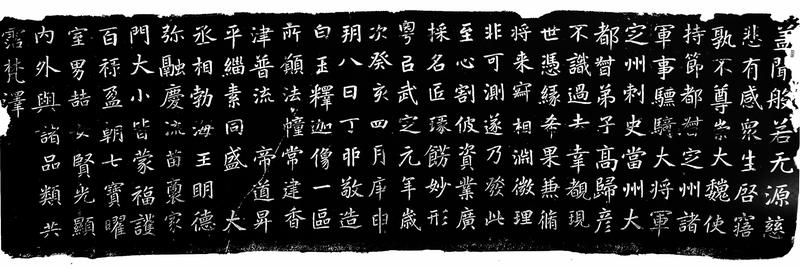 蓋聞般若无源慈
悲有感衆生啓寤
孰不尊崇大魏使
持節都督定州諸
軍事驃騎大將軍
定州刺史當州大
都督弟子高歸彦
不識過去幸覩現
世憑緣希果兼脩
將来竊相淵微理
非可測遂乃發此
至心割彼資業廣
採名匠琢餝妙形
粤㠯武定元年歲
次癸亥四月庚申
玥八日丁卯敬造
白玉釋迦像一區
所願法幢常建香
津普流 帝道昇
平緇素同盛 大
丞相勃海王明德
弥融慶流苗裔家
門大小皆蒙福護
百祿盈朝七寶曜
室男喆女賢光顯
内外與諸品類共
霑梵澤